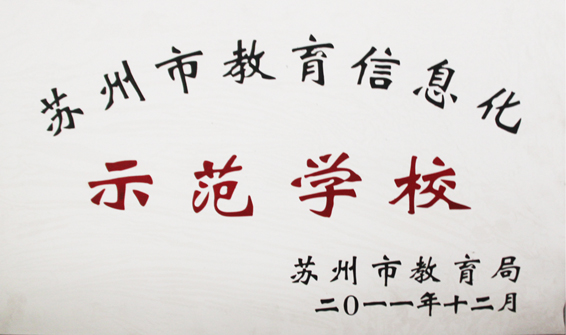 苏州市教育信息化
示范学校
苏州市教育局
二0一一年十二月